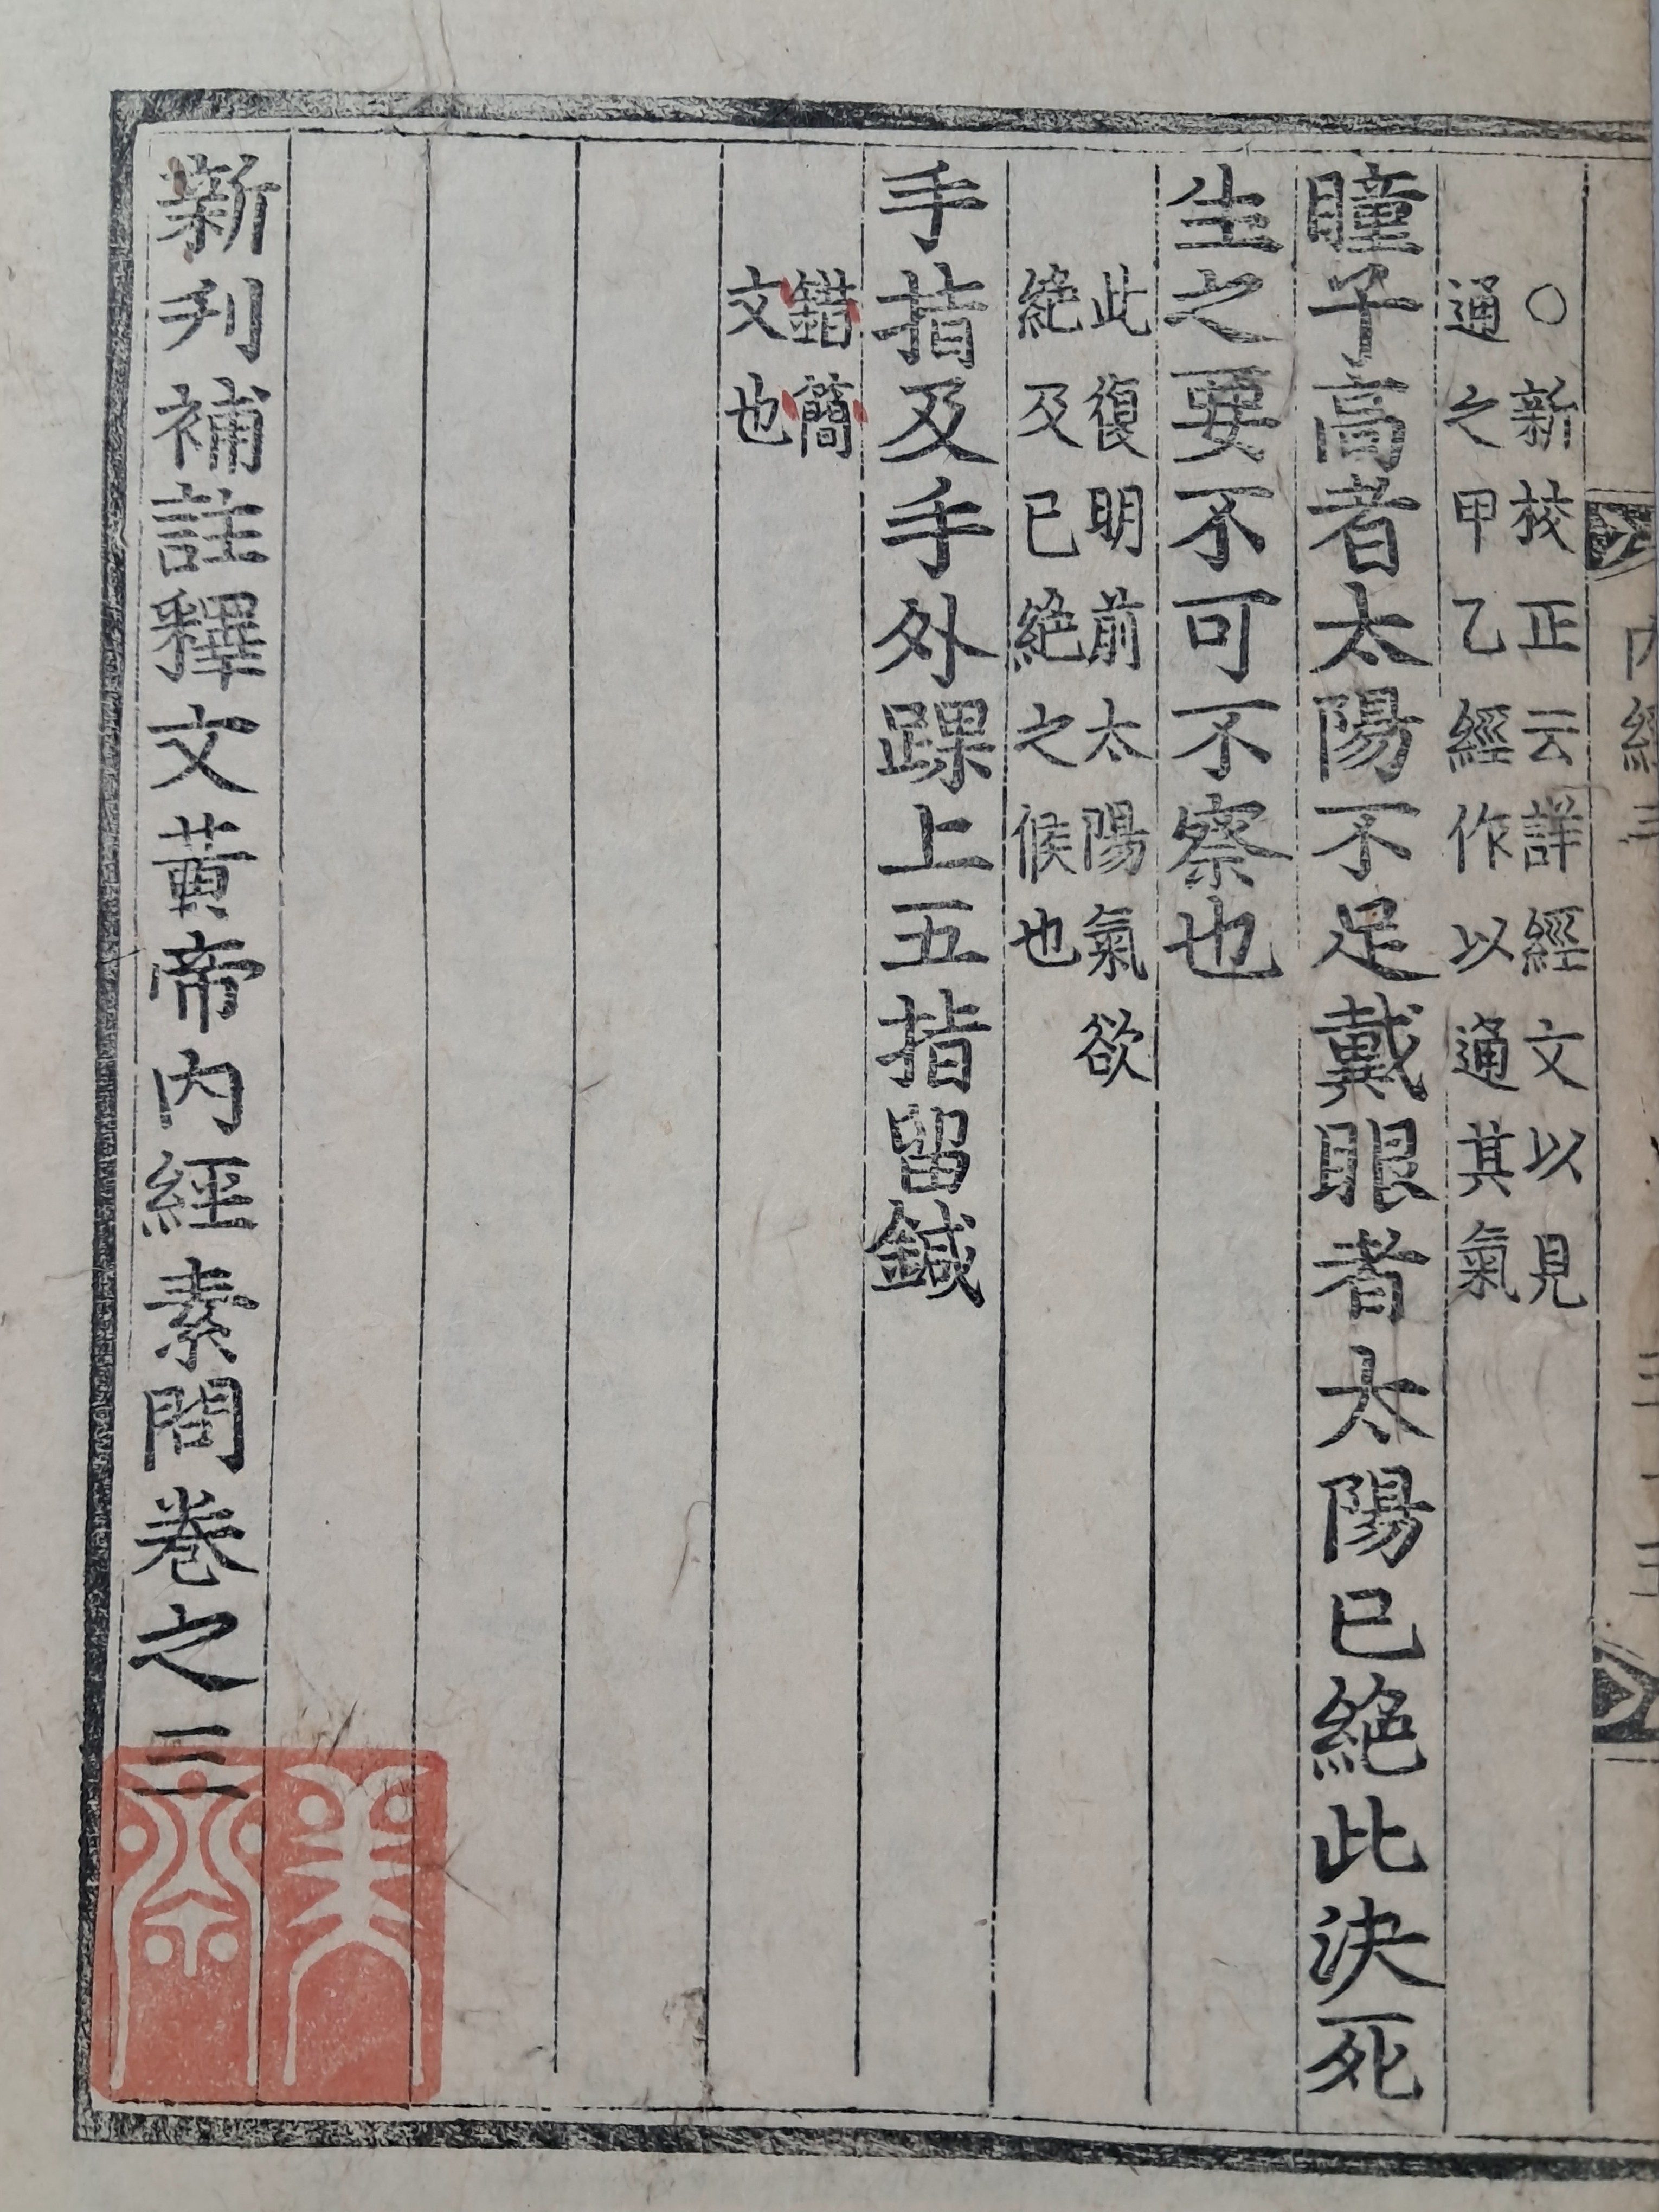 ○新校正云詳經文以見
通之甲乙經作以通其氣
瞳子高者太陽不足戴眼者太陽已絕此決死
生之要不可不察也
此復明前太陽氣欲
絕及已絕之候也
手指及手外踝上五指留鍼
錯簡
文也
新刋補註釋文黃帝內經素問卷之三